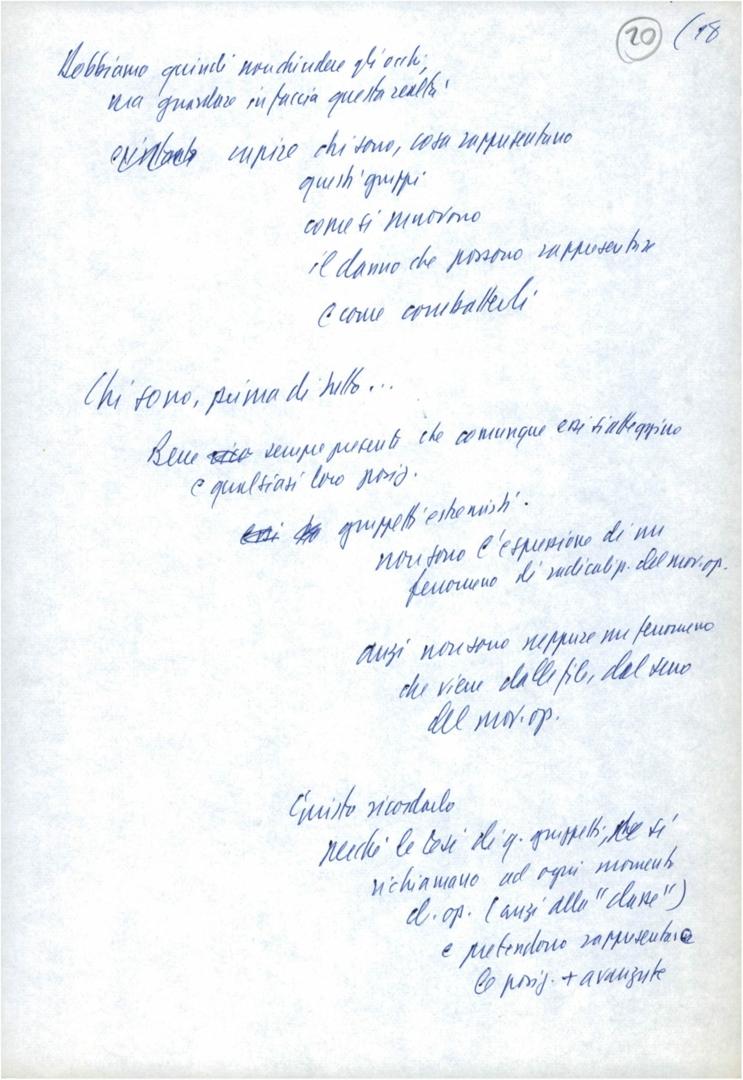 20 (18
Dobbiamo quindi non chiudere gli occhi,
ma guardare in faccia questa realtà
capire chi sono, cosa rappresentano
questi gruppi
come si muovono
il danno che possono rappresentare
e come combatterli
Chi sono, prima di tutto...
Bene sempre presenti che comunque essi si atteggino
e qualsiasi loro posiz.
gruppetti estremisti.
non sono l'espressione di un
fenomeno di radicalizz. del mov. op.
anzi non sono neppure un fenomeno
che viene dalle file, dal seno
del mov. op.
Giusto ricordarlo
perché le tesi di q. gruppetti, che si
richiamano ad ogni momento
cl. op. (anzi alla "classe")
e pretendono rappresentare
le posiz. + avanzate